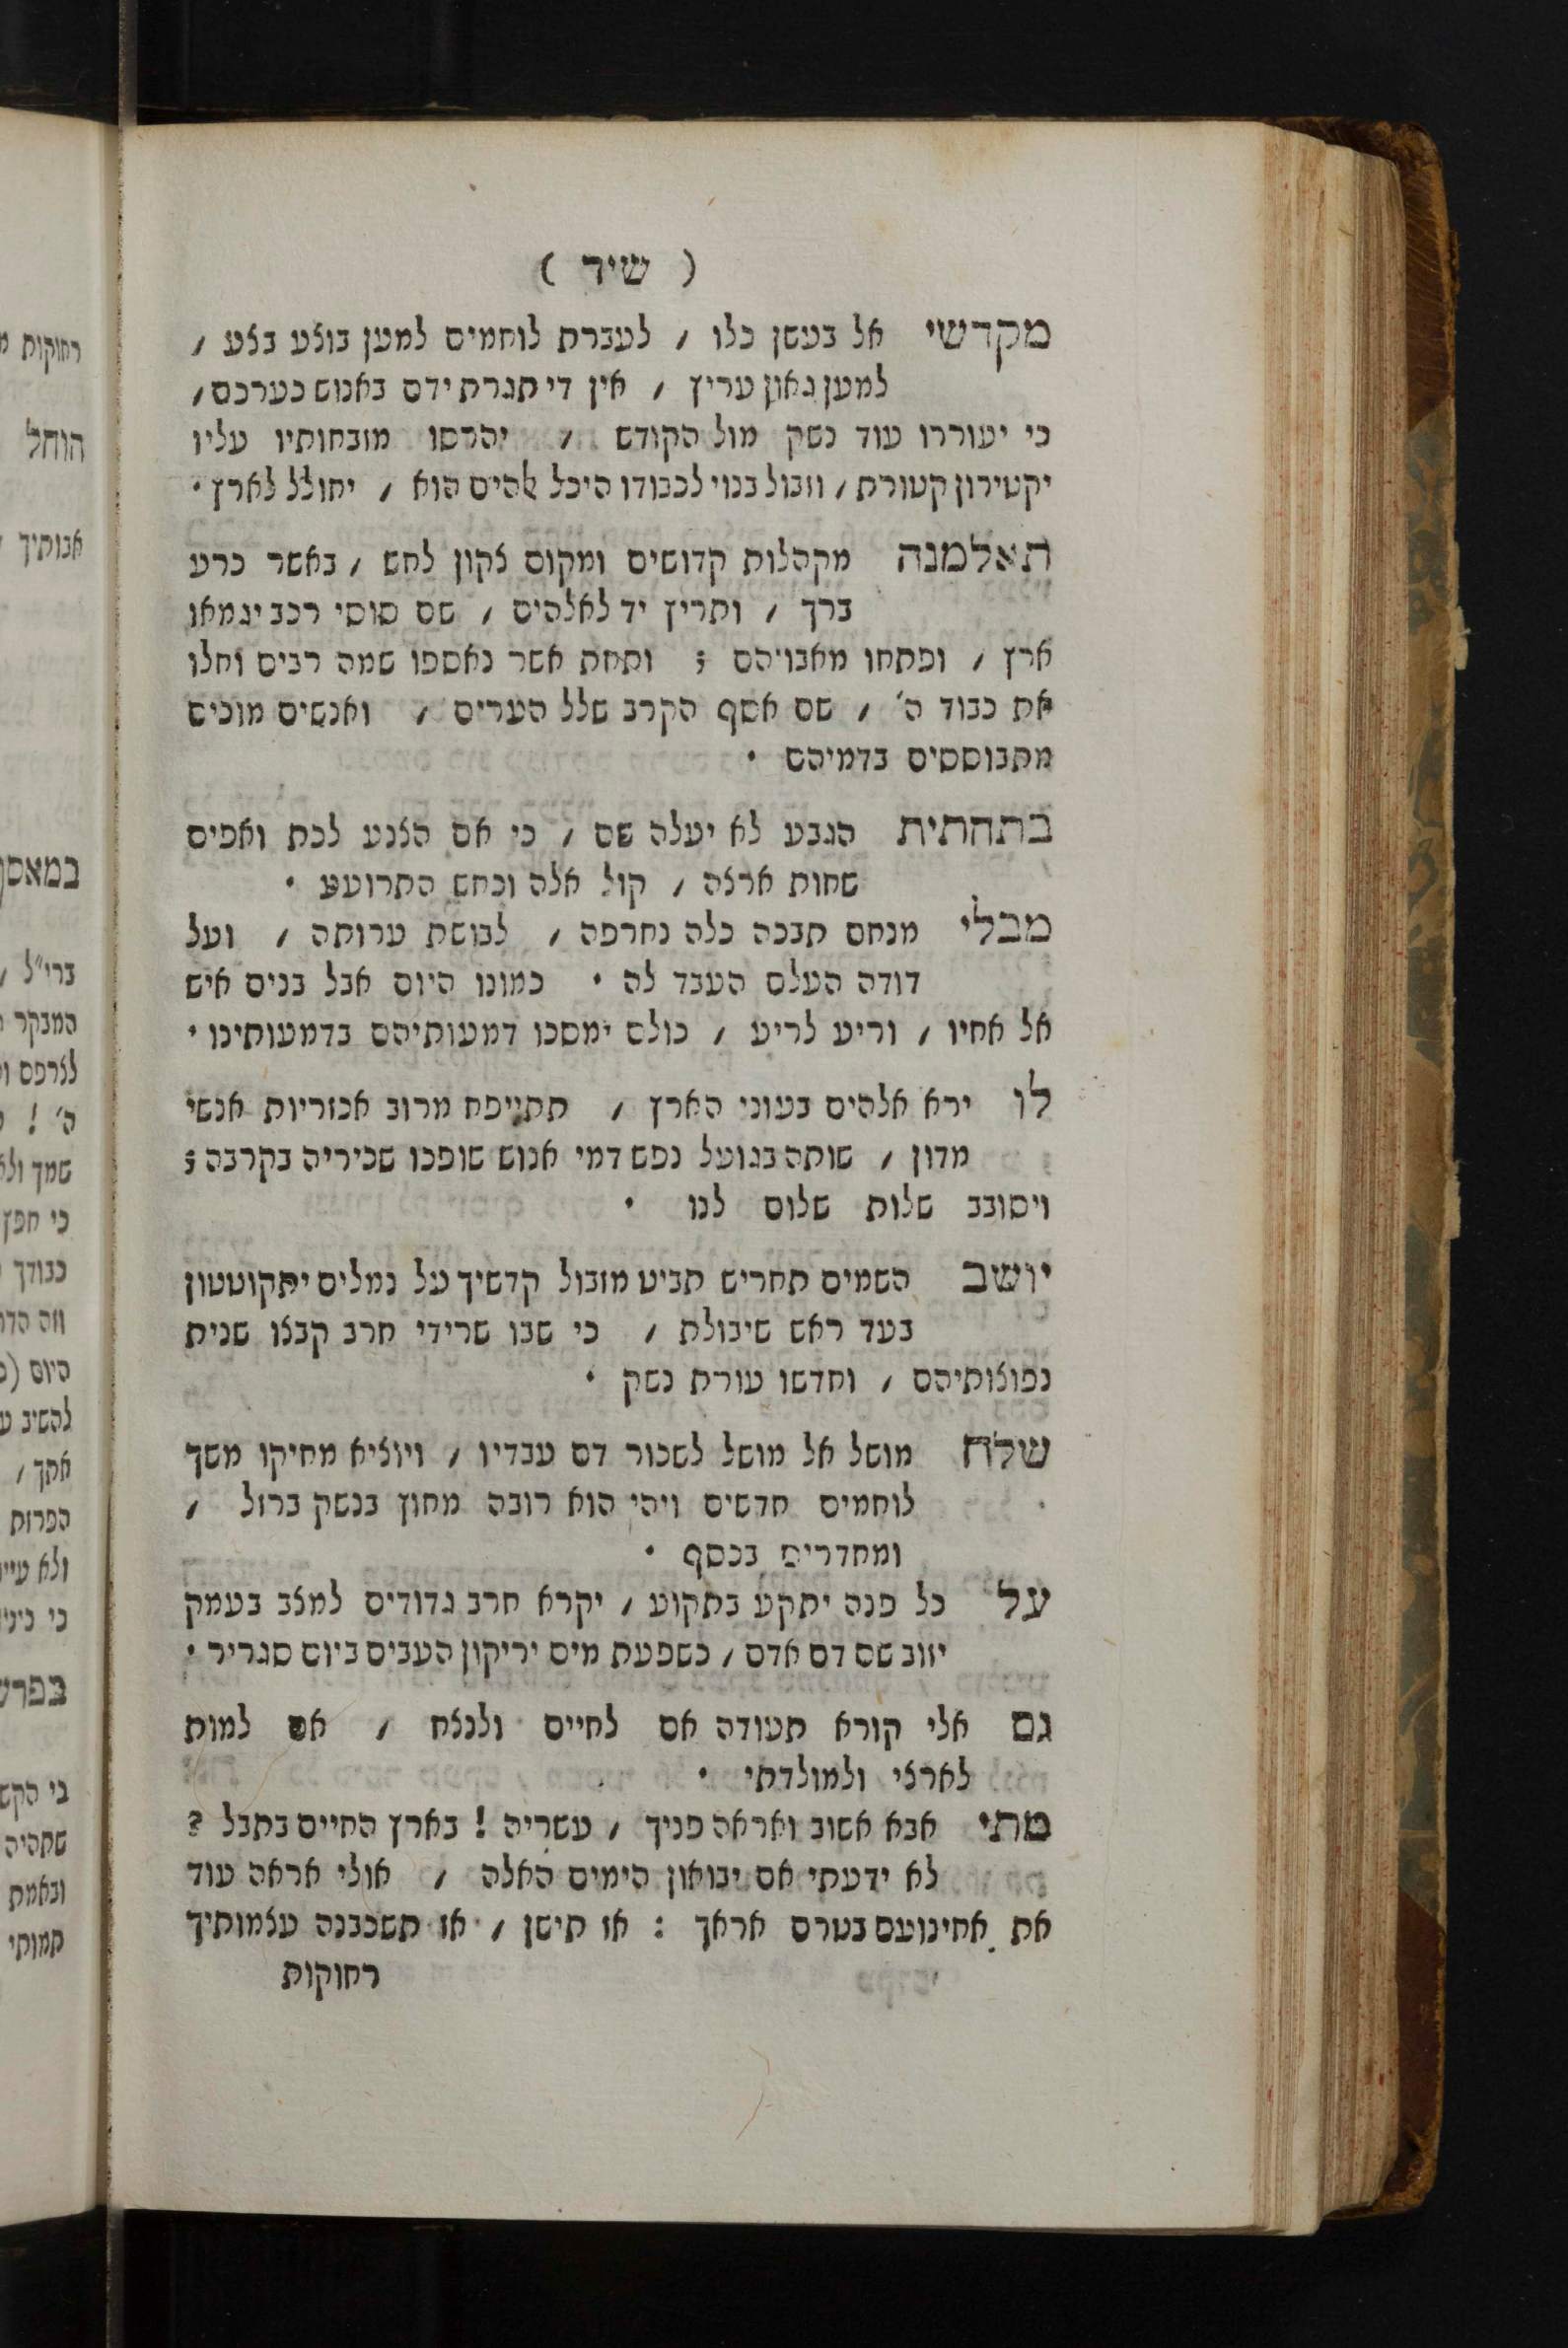 ( שיד )
מקדשי אל בעשן כלו / לעברת לוחמים למען בוצע בצע /
למען גאון עריץ / אין די תגרת ידם באנוש כערכם /
כי יעוררו עוד נשק מול הקודש / יהרסו מזבחותיו עליו
יקטירון קטורת / וזבול בנוי לכבודו היכל אלהים הוא / יחולל לארץ •
תאלמנה מקהלות קדושים ומקום צקון לחש / באשר כרע
ברך / ותריץ יד לאלהים / שם סוסי רכב יגמאו
ארץ / ופתחו מאבויהם ; ותחת אשר נאספו שמה רבים וחלו
את כבוד ה' / שם אסף הקרב שלל הערים / ואנשים מוכים
מתבוססים בדמיהם •
בתחתית הגבע לא יעלה שם / כי אם הצנע לכת ואפים
שחות ארצה / קול אלה וכחש התרועע •
מבלי מנחם תבכה כלה נחרפה / לבושת ערותה / ועל
דודה העלם העבד לה • כמונו היום אבל בנים איש
אל אחיו / וריע לריע / כולם ימסכו דמעותיהם בדמעותינו •
לו ירא אלהים בעוני הארץ / תתייפח מרוב אכזריות אנשי
מדון / שותה בגועל נפש דמי אנוש שופכו שכיריה בקרבה ;
ויסובב שלות שלום לנו •
יושב השמים תחריש תביט מזבול קדשיך על נמלים יתקוטטון
בעד ראש שיבולת / כי שבו שרידי חרב קבצו שנית
נפוצותיהם / וחדשו עורת נשק •
שלח מושל אל מושל לשכור דם עבדיו / ויוציא מחיקו משך
לוחמים חדשים ויהי הוא רובה מחוץ בנשק ברזל /
ומחדרים בכסף •
על כל פנה יתקע בתקוע / יקרא חרב גדודים למצב בעמק
יזוב שם דם אדם / כשפעת מים יריקון העבים ביום סגריר •
גם אלי קורא תעודה אם לחיים ולנצח / אם למות
לארצי ולמולדתי •
מתי אבא אשוב ואראה פניך / עשריה ! בארץ החיים בתבל ?
לא ידעתי אם יבואון הימים האלה / אולי אראה עוד
את אחינועם בטרם אראך : אז תישן / אז תשכבנה עצמותיך
רחוקות